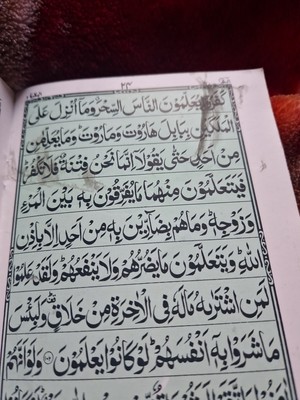 كَفَرُوْا يُعَلِّمُوْنَ النَّاسَ السِّحْرَ وَمَآ اُنْزِلَ عَلَى
الْمَلَكَيْنِ بِبَابِلَ هَارُوْتَ وَمَارُوْتَ ؕ وَمَا يُعَلِّمٰنِ
مِنْ اَحَدٍ حَتّٰى يَقُوْلَاۤ اِنَّمَا نَحْنُ فِتْنَةٌ فَلَا تَكْفُرْ ؕ
فَيَتَعَلَّمُوْنَ مِنْهُمَا مَا يُفَرِّقُوْنَ بِهٖ بَيْنَ الْمَرْءِ
وَزَوْجِهٖ ؕ وَمَا هُمْ بِضَآرِّيْنَ بِهٖ مِنْ اَحَدٍ اِلَّا بِاِذْنِ
اللّٰهِ ؕ وَيَتَعَلَّمُوْنَ مَا يَضُرُّهُمْ وَلَا يَنْفَعُهُمْ ؕ وَلَقَدْ عَلِمُوْا
لَمَنِ اشْتَرٰىهُ مَا لَهٗ فِى الْاٰخِرَةِ مِنْ خَلَاقٍ ؕ وَلَبِئْسَ
مَا شَرَوْا بِهٖۤ اَنْفُسَهُمْ ؕ لَوْ كَانُوْا يَعْلَمُوْنَ ﴿۱۰۲﴾ وَلَوْ اَنَّهُمْ